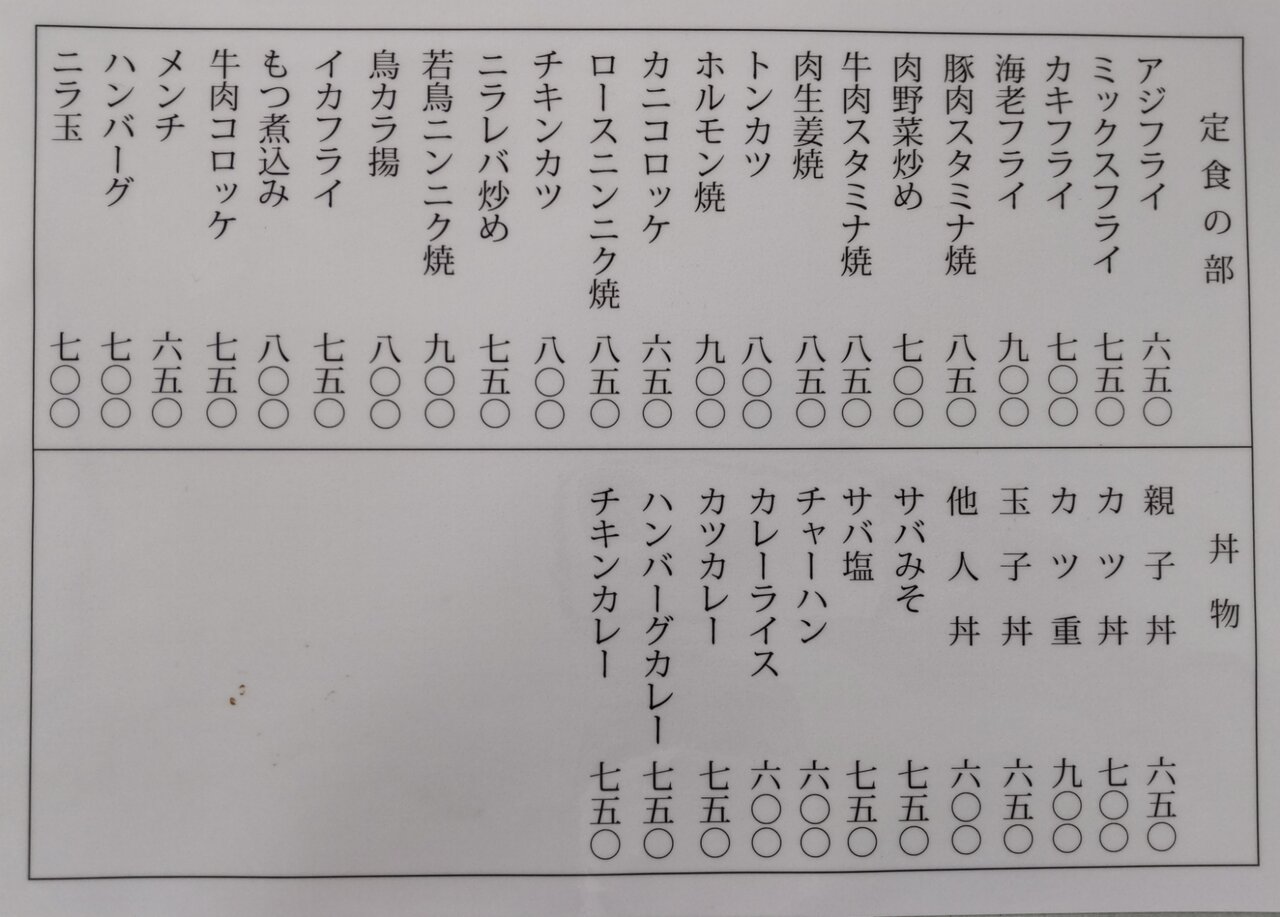 定食の部
アジフライ 六五〇
ミックスフライ 七五〇
カキフライ 七〇〇
海老フライ 九〇〇
豚肉スタミナ焼 八五〇
肉野菜炒め 七〇〇
牛肉スタミナ焼 八五〇
肉生姜焼 八五〇
トンカツ 八〇〇
ホルモン焼 九〇〇
カニコロッケ 六五〇
ロースニンニク焼 八五〇
チキンカツ 八〇〇
ニラレバ炒め 七五〇
若鳥ニンニク焼 九〇〇
鳥カラ揚 八〇〇
イカフライ 七五〇
もつ煮込み 八〇〇
牛肉コロッケ 七五〇
メンチ 六五〇
ハンバーグ 七〇〇
ニラ玉 七〇〇
丼物
親子丼 六五〇
カツ丼 七〇〇
カツ重 九〇〇
玉子丼 六五〇
他人丼 六〇〇
サバみそ 七五〇
サバ塩 七五〇
チャーハン 六〇〇
カレーライス 六〇〇
カツカレー 七五〇
ハンバーグカレー 七五〇
チキンカレー 七五〇